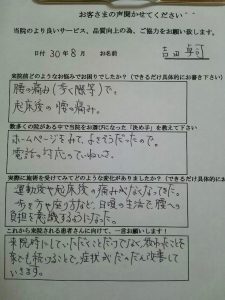 お客さまの声聞かせてください
当院のより良いサービス、品質向上の為、ご協力をお願い致します。
日付 30年8月 お名前
来院前どのようなお悩みでお困りでしたか？（できるだけ具体的にお書き下さい）
腰の痛み（歩く際等）で。
起床後の腰の痛み。
数多くの院がある中で当院をお選びになった「決め手」を教えて下さい
ホームページをみて、よさそうだったので。
電話の対応のていねいさ。
実際に施術を受けてみてどのような変化がありましたか？（できるだけ具体的にお
運動後や起床後の痛みがなくなってきた。
歩き方や座り方など、日頃の生活で、腰への
負担を意識するようになった。
これから来院される患者さんに向けて、一言お願いします！
来院時にしていただくことだけでなく、教わったことを
家でも続けることで、症状がだんだん改善して
いきます。